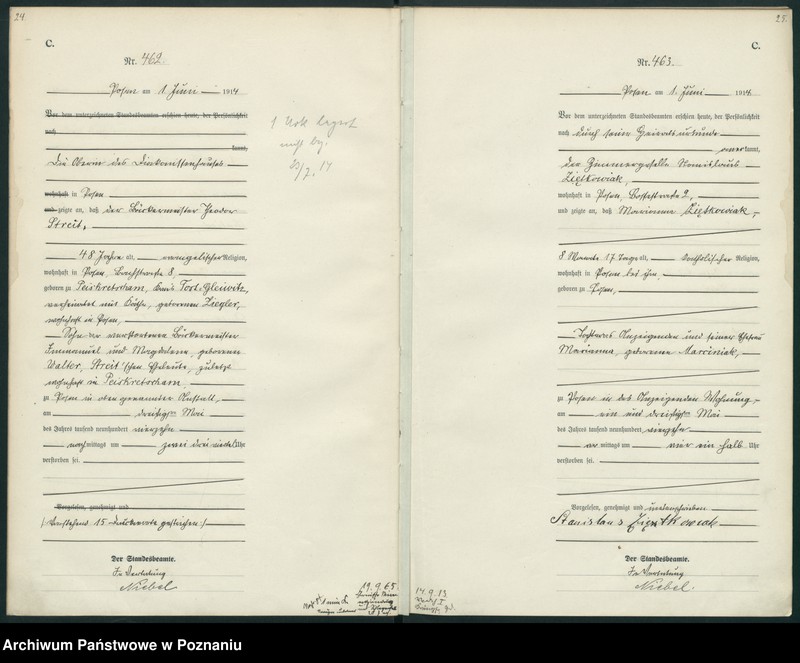 24
C.
Nr. 462.
Posen am 1. Juni 1914
Vor dem unterzeichneten Standesbeamten erschien heute, der Persönlichkeit
nach
kannt,
Die Oberin des Diakonissenhauses
wohnhaft in Posen
und zeigte an, daß der Bäckermeister Theodor
Streit,
48 Jahre alt, evangelischer Religion,
wohnhaft in Posen, Bachstraße 8,
geboren zu Peiskretscham, Kreis Tost-Gleiwitz,
verheiratet mit Käthe, geborenen Ziegler,
wohnhaft in Posen,
Sohn der verstorbenen Bäckermeister
Immanuel und Magdalena, geborenen
Walter, Streit'schen Eheleute, zuletzt
wohnhaft in Peiskretscham
zu Posen in oben genannter Anstalt,
am dreißigsten Mai
des Jahres tausend neunhundert vierzehn
nachmittags um zwei drei viertel Uhr
verstorben sei.
Vorgelesen, genehmigt und
(Vorstehend 15 Druckworte gestrichen.)
Der Standesbeamte.
In Vertretung
Niebel
19.9.65.
25.
C.
Nr. 463.
Posen am 1. Juni 1914
Vor dem unterzeichneten Standesbeamten erschien heute, der Persönlichkeit
nach durch seine Heiratsurkunde
anerkannt,
der Zimmergeselle Stanislaus
Ziętkowiak,
wohnhaft in Posen, 2,
und zeigte an, daß Marianna Ziętkowiak,
8 Monate 17 Tage alt, katholischer Religion,
wohnhaft in Posen bei ihm,
geboren zu Posen,
Tochter des Anzeigenden und seiner Ehefrau
Marianna, geborenen Marciniak,
zu Posen in des Anzeigenden Wohnung
am ein und dreißigsten Mai
des Jahres tausend neunhundert vierzehn
vormittags um vier ein halb Uhr
verstorben sei.
Vorgelesen, genehmigt und unterschrieben
Stanislaus Ziętkowiak
Der Standesbeamte.
In Vertretung
Niebel.
14.9.13
Archiwum Państwowe w Poznaniu